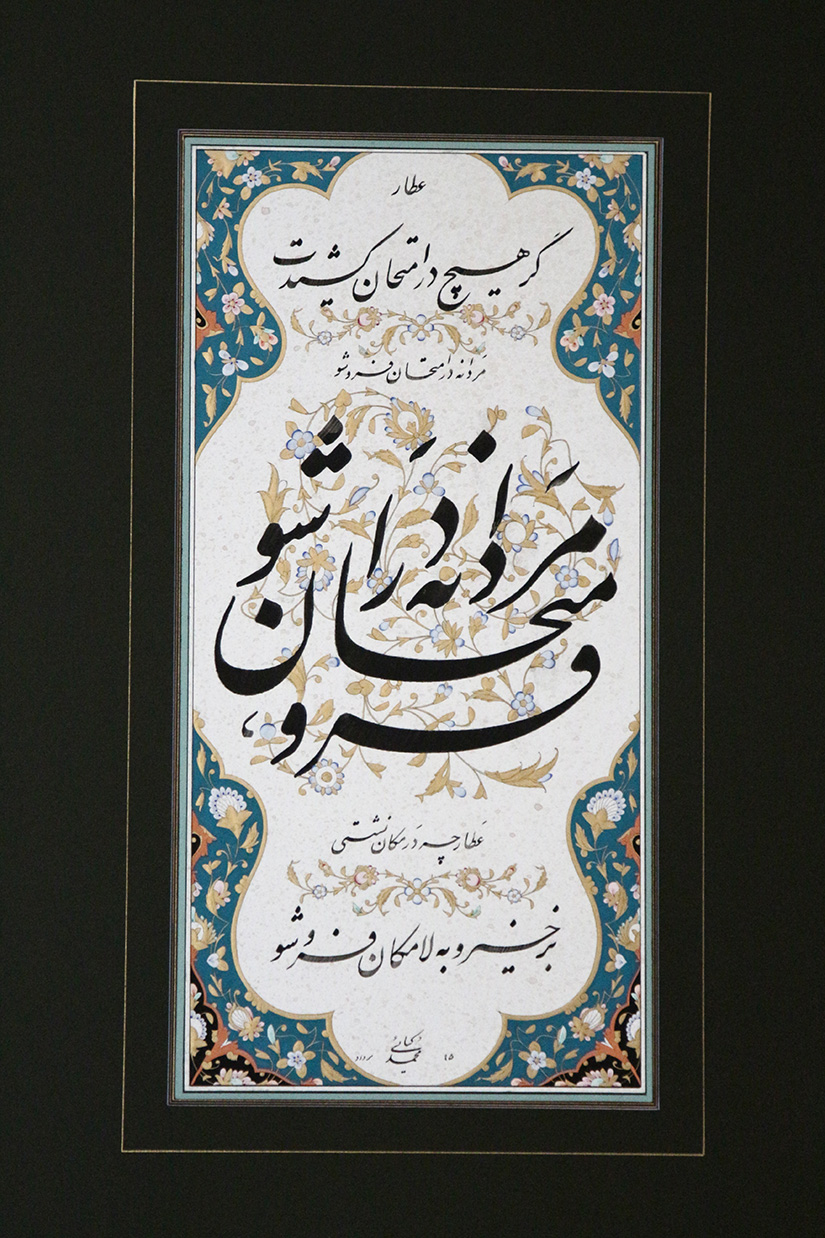 عطار
گر هیچ در امتحان کشندت
مردانه در امتحان فرو شو
مردانه در ا
متحان شو
فرو
عطار چه در مکان نشستی
برخیز و به لامکان فرو شو
محمد